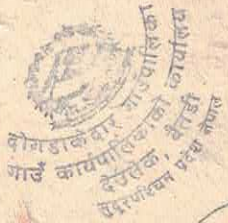 दोगडाकेदार गाउँपालिका
गाउँ कार्यपालिकाको कार्यालय
देउलेक, बैतडी
सुदूरपश्चिम प्रदेश नेपाल